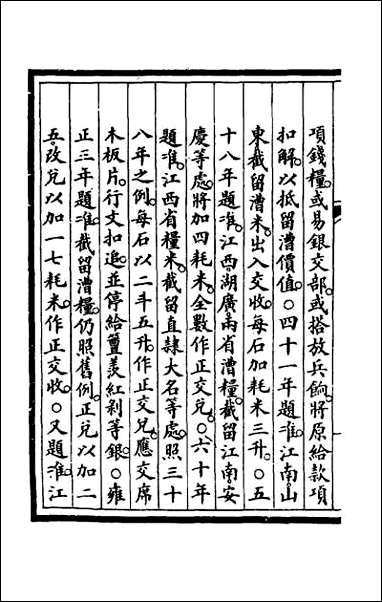 項錢糧。或易銀交部。或搭放兵餉。將原給款項
扣解。以抵留漕價值。○四十一年題准。江南山
東截留漕米。出入交收。每石加耗米三升。○五
十八年題准。江西。湖廣。兩省漕糧。截留江南。安
慶等處。將加四耗米。全數作正交兌。○六十年
題准。江西省糧米。截留直隸大名等處。照三十
八年之例。每石以二斗五升。作正交兌。應交席
木板片。行文扣追。並停給薑羨紅剝等銀。○雍
正三年題准。截留漕糧。仍照舊例。正兌以加二
五。改兌以加一七耗米。作正交收。○又題准。江